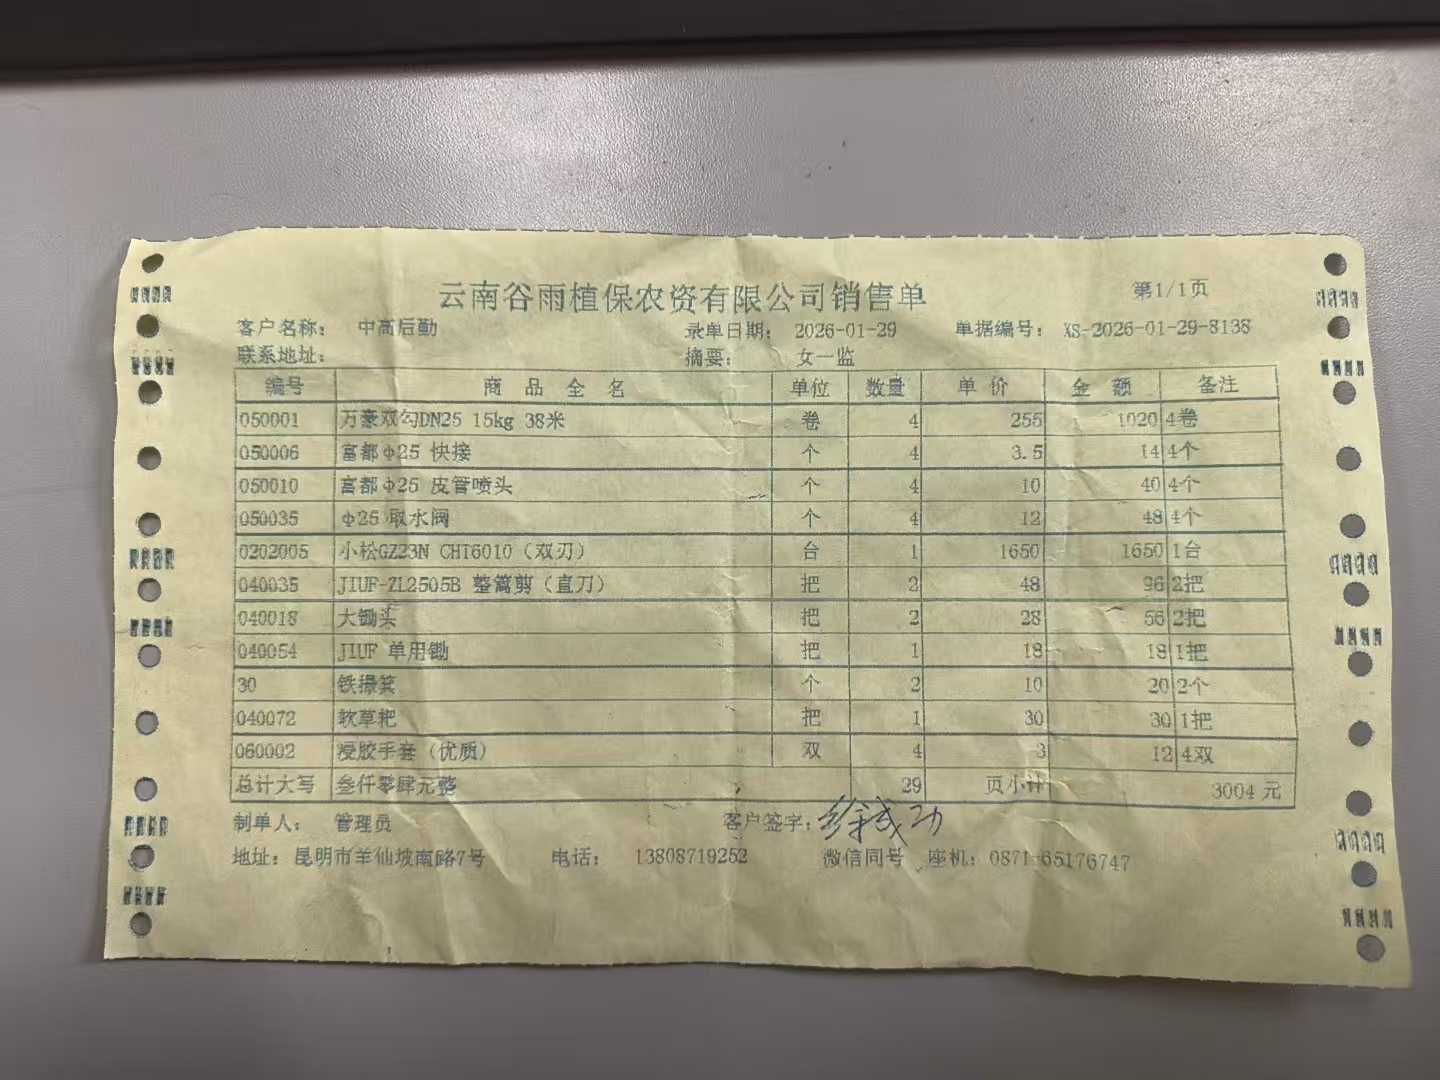 云南谷雨植保农资有限公司销售单 第1/1页
客户名称： 中高后勤 录单日期： 2026-01-29 单据编号： XS-2026-01-29-8138
联系地址： 摘要： 女一监
编号 商品全名 单位 数量 单价 金额 备注
050001 万豪双勾DN25 15kg 38米 卷 4 255 1020 4卷
050006 富都Φ25 快接 个 4 3.5 14 4个
050010 富都Φ25 皮管喷头 个 4 10 40 4个
050035 Φ25 取水阀 个 4 12 48 4个
0202005 小松GZ23N CHT6010（双刃） 台 1 1650 1650 1台
040035 JIUF-ZL2505B 整篱剪（直刀） 把 2 48 96 2把
040018 大锄头 把 2 28 56 2把
040054 JIUF 单用锄 把 1 18 18 1把
30 铁撮箕 个 2 10 20 2个
040072 软草耙 把 1 30 30 1把
060002 浸胶手套（优质） 双 4 3 12 4双
总计大写 叁仟零肆元整 29 页小计 3004 元
制单人： 管理员 客户签字： 徐成功
地址：昆明市羊仙坡南路7号 电话： 13808719252 微信同号 座机：0871-65176747